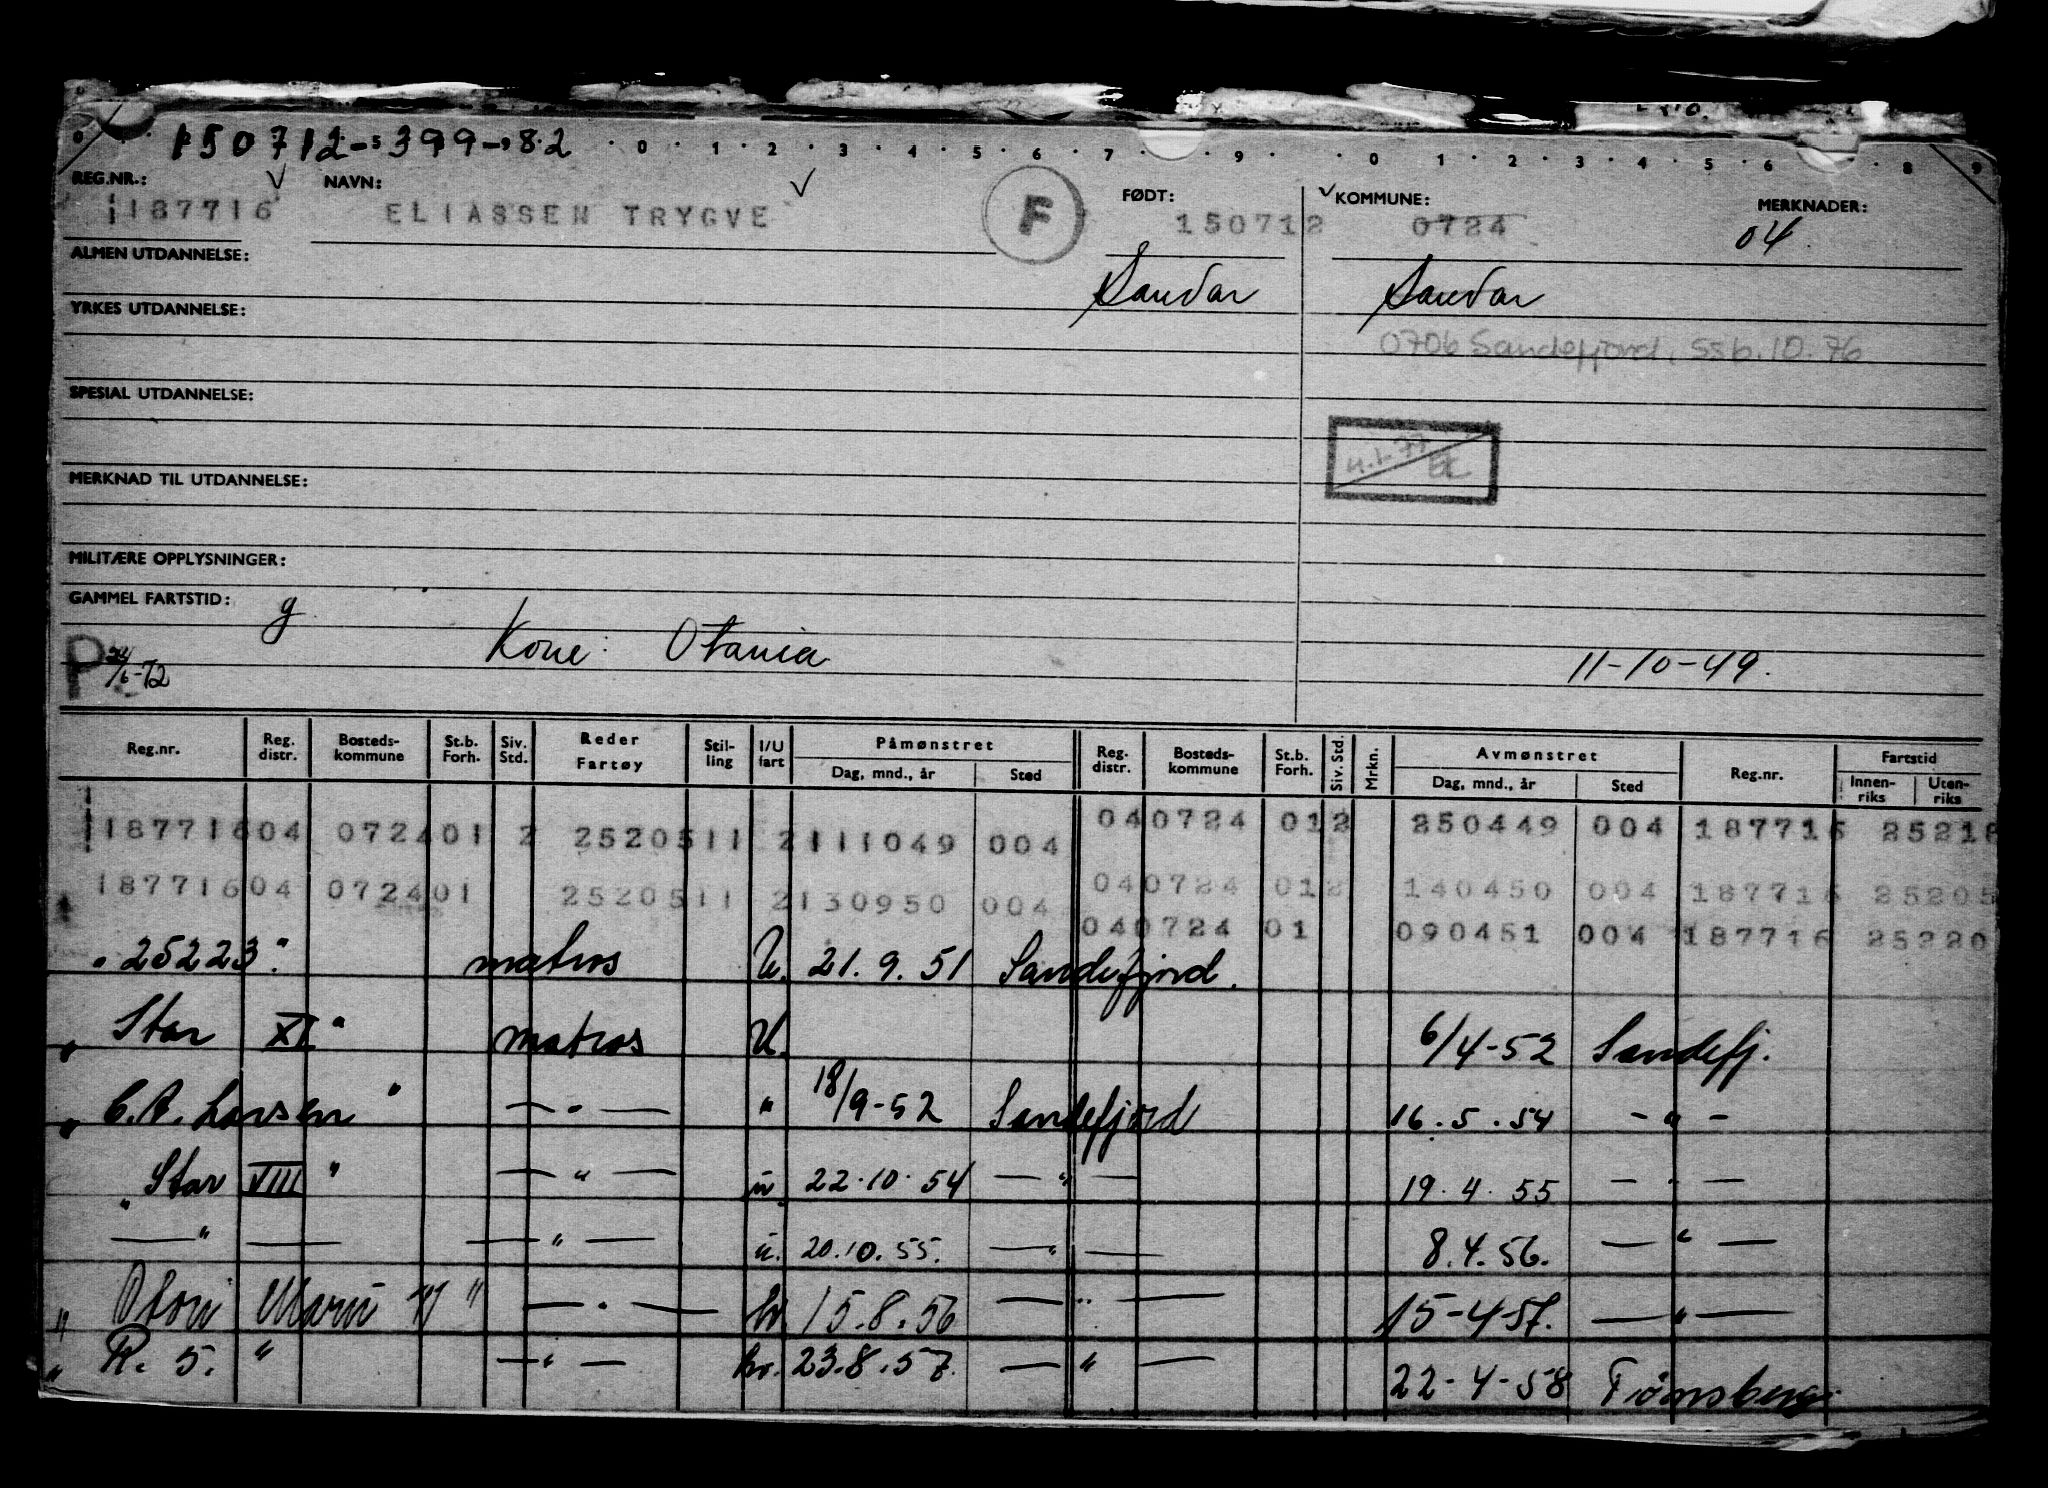 150712-399-82
0 . 1 . 2 . 3 . 4 . 5 . 6 . 7 . 9 . 0 1 . 2 . 3 . 4 . 5 . 6 . 8 . 9
REG.NR.: NAVN: FØDT: KOMMUNE: MERKNADER:
187716 ELIASSEN TRYGVE F 150712 0724 04
ALMEN UTDANNELSE: Sandar Sandar
YRKES UTDANNELSE:
0706 Sandefjord, SSb.10.76
SPESIAL UTDANNELSE:
MERKNAD TIL UTDANNELSE:
MILITÆRE OPPLYSNINGER:
GAMMEL FARTSTID: g
P -72 Kone: Otania 11-10-49.
Reg.nr. Reg. distr. Bosteds-kommune St.b. Forh. Siv. Std. Reder Fartøy Stil-ling I/U fart Påmønstret Dag, mnd., år Sted Reg. distr. Bosteds-kommune St.b. Forh. Siv. Std. Mrkn. Avmønstret Dag, mnd., år Sted Reg.nr. Fartstid Innen-riks Uten-riks
187716 04 0724 01 2 2520511 2 111049 004 04 0724 01 2 250449 004 187716 25218
187716 04 0724 01 2520511 2 130950 004 04 0724 01 2 140450 004 187716 25205
04 0724 01 090451 004 187716 25220
" 25223 " matros U. 21.9.51 Sandefjord.
" Star XI " matros U. 6/4-52 Sandefj.
" C.A. Larsen " — " — " 18/9-52 Sandefjord 16.5.54 - " -
" Star VIII " — " — u. 22.10.54 — " — 19.4.55 — " —
— " — — " — u. 20.10.55. — " — 8.4.56. — " —
" — " — hv. 15.8.56 — " — 15-4-57. — " —
" R. 5. " — " — hv. 23.8.57. — " — 22-4-58 Tønsberg